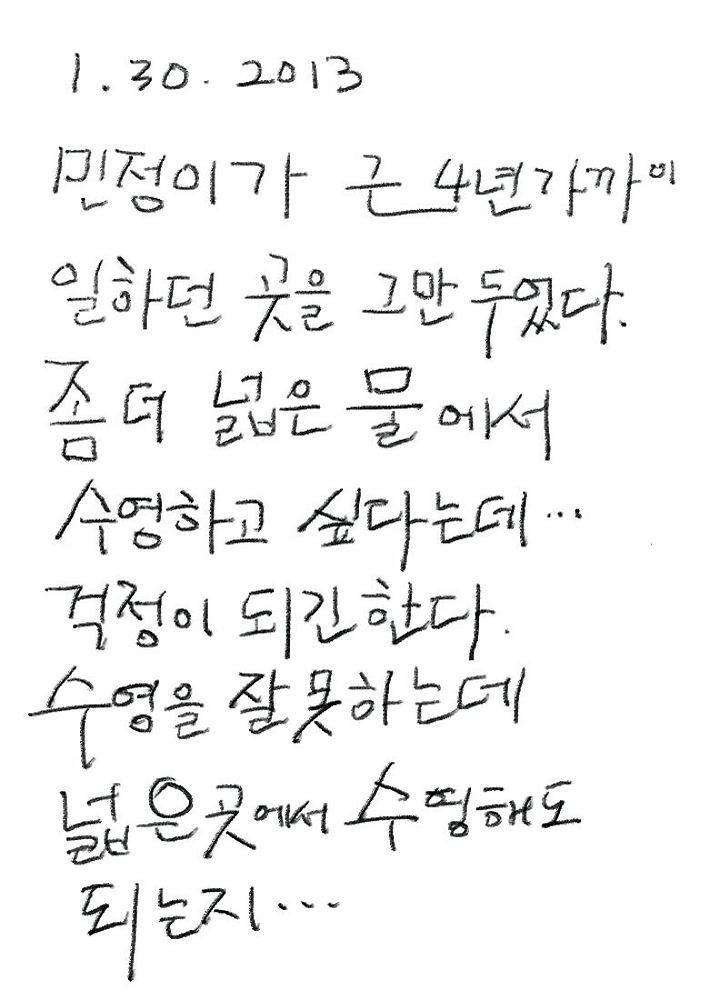 1.30.2013
민정이가 근 4년가까이
일하던 곳을 그만두었다.
좀 더 넓은 물에서
수영하고 싶다는데...
걱정이 되긴한다.
수영을 잘못하는데
넓은곳에서 수영해도
되는지...